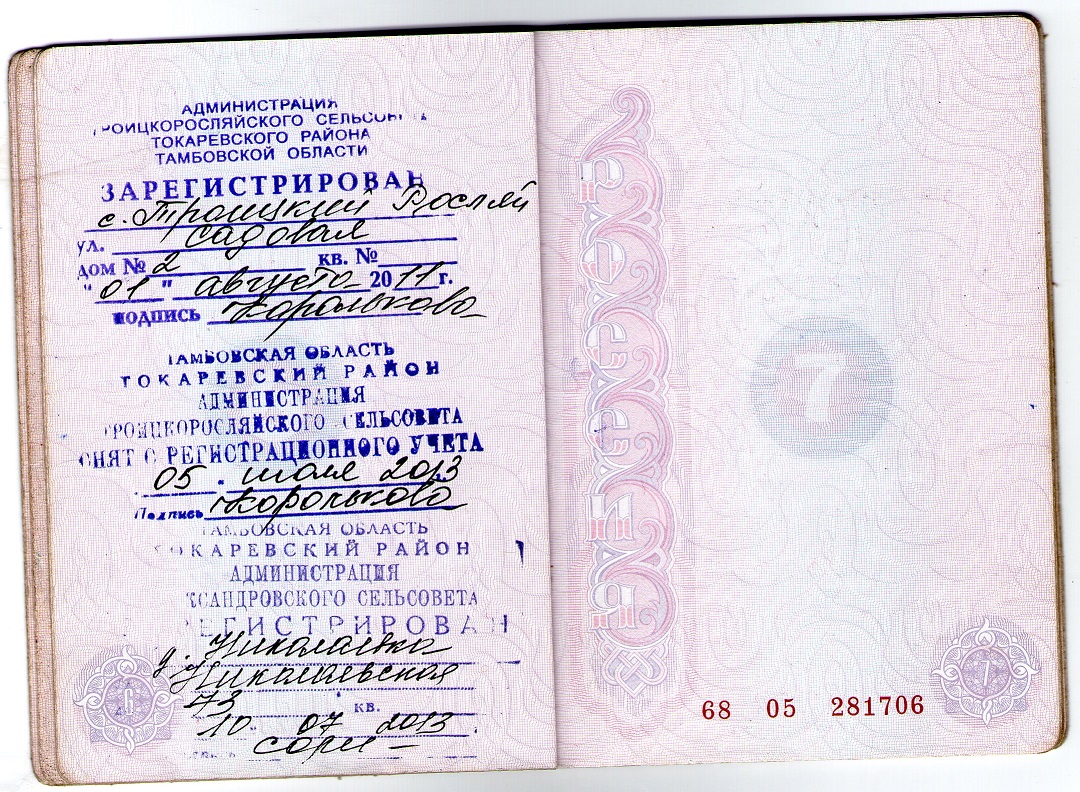 АДМИНИСТРАЦИЯ
ТРОИЦКОРОСЛЯЙСКОГО СЕЛЬСОВЕТА
ТОКАРЕВСКОГО РАЙОНА
ТАМБОВСКОЙ ОБЛАСТИ
ЗАРЕГИСТРИРОВАН
с. Троицкий Росляй
ул. Садовая
дом № 2 кв. №
"01" августа 2011 г.
подпись Королькова
ТАМБОВСКАЯ ОБЛАСТЬ
ТОКАРЕВСКИЙ РАЙОН
АДМИНИСТРАЦИЯ
ТРОИЦКОРОСЛЯЙСКОГО СЕЛЬСОВЕТА
СНЯТ С РЕГИСТРАЦИОННОГО УЧЕТА
05 июля 2013
Подпись Королькова
ТАМБОВСКАЯ ОБЛАСТЬ
ТОКАРЕВСКИЙ РАЙОН
АДМИНИСТРАЦИЯ
КСАНДРОВСКОГО СЕЛЬСОВЕТА
РЕГИСТРИРОВАН
д. Николаевка
ул. Николаевская
73 кв.
10 07 2013
6
7
7
68 05 281706